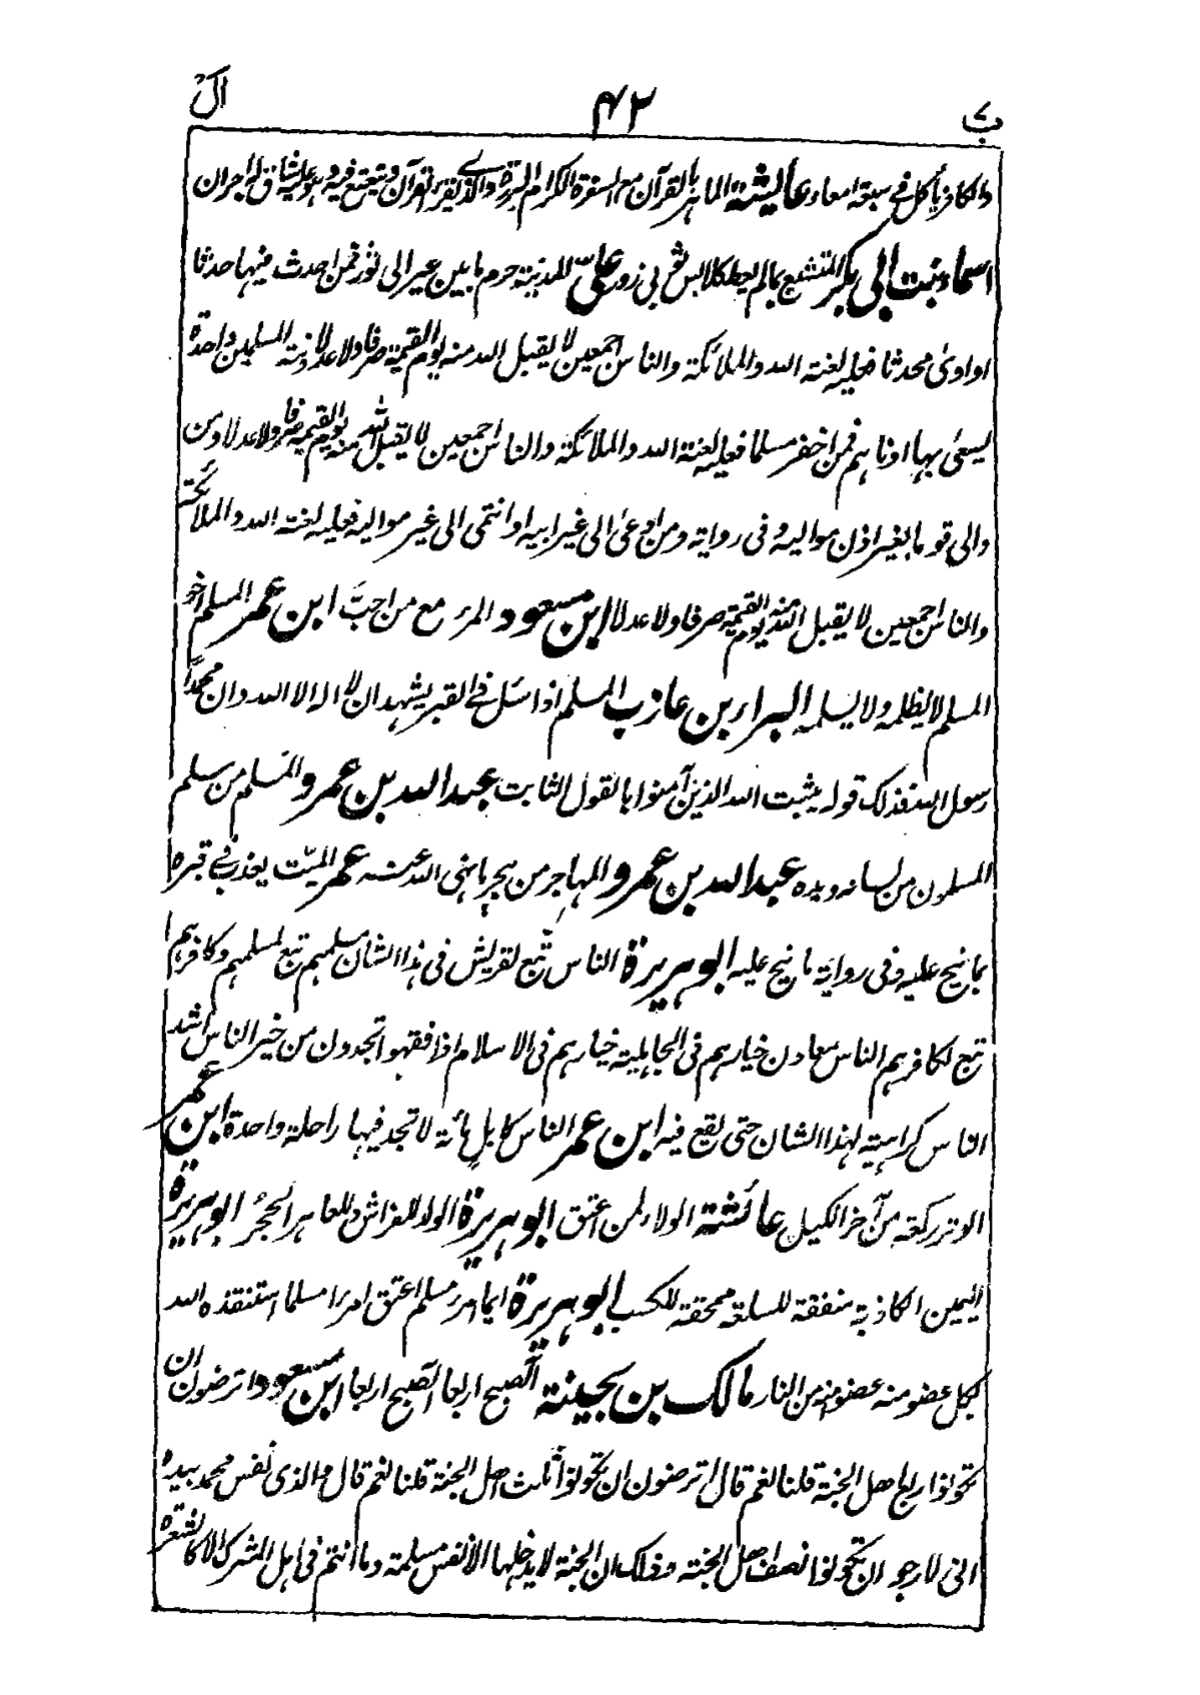 ب ۴۲ ال
والکافر یأکل فی سبعة امعاء عائیشة الماهر بالقرآن مع السفرة الکرام البررة والذی یقرء القرآن ویتتعتع فیه وهو علیه شاق له اجران
اسماء بنت ابی بکر المتشبع بما لم یعط کلابس ثوبی زور علی المدینة حرم ما بین عیر الی ثور فمن احدث فیها حدثا
او اوی محدثا فعلیه لعنة الله والملائکة والناس اجمعین لا یقبل الله منه یوم القیمة صرفا ولا عدلا وذمة المسلمین واحدة
یسعی بها ادناهم فمن اخفر مسلما فعلیه لعنة الله والملائکة والناس اجمعین لا یقبل الله منه یوم القیمة صرفا ولا عدلا ومن
والی قوما بغیر اذن موالیه وفی روایة ومن ادعی الی غیر ابیه او انتمی الی غیر موالیه فعلیه لعنة الله والملائکة
والناس اجمعین لا یقبل الله منه یوم القیمة صرفا ولا عدلا ابن مسعود المرء مع من احبّ ابن عمر المسلم اخو
المسلم لا یظلمه ولا یسلمه البراء بن عازب المسلم اذا سئل فی القبر یشهد ان لا اله الا الله وان محمداً
رسول الله فذلک قوله یثبت الله الذین آمنوا بالقول الثابت عبد الله بن عمرو المسلم من سلم
المسلمون من لسانه ویده عبد الله بن عمرو المهاجر من هجر ما نهی الله عنه عمر المیّت یعذب فی قبره
بما نیح علیه وفی روایة ما نیح علیه ابو هریرة الناس تبع لقریش فی هذا الشان مسلمهم تبع لمسلمهم وکافرهم
تبع لکافرهم الناس معادن خیارهم فی الجاهلیة خیارهم فی الاسلام اذا فقهوا تجدون من خیر الناس اشد
الناس کراهیة لهذا الشان حتی یقع فیه ابن عمر الناس کابلٍ مائة لا تجد فیها راحلة واحدة ابن عمر
الوتر رکعة من آخر اللیل عائشة الولاء لمن اعتق ابو هریرة الولد للفراش وللعاهر الحجرُ ابو هریرة
الیمین الکاذبة منفقة للسلعة ممحقة للکسب ابو هریرة ایما امرء مسلم اعتق امرءا مسلما استنقذه الله
بکل عضو منه عضوا منه من النار مالک بن بحینة آلصبح اربعا آلصبح اربعا ابن مسعود اترضون ان
تکونوا ربع اهل الجنة قلنا نعم قال اترضون ان تکونوا ثلث اهل الجنة قلنا نعم قال والذی نفس محمد بیده
انی لارجو ان تکونوا نصف اهل الجنة وذلک ان الجنة لا یدخلها الا نفس مسلمة وما انتم فی اهل الشرک الا کالشعرة